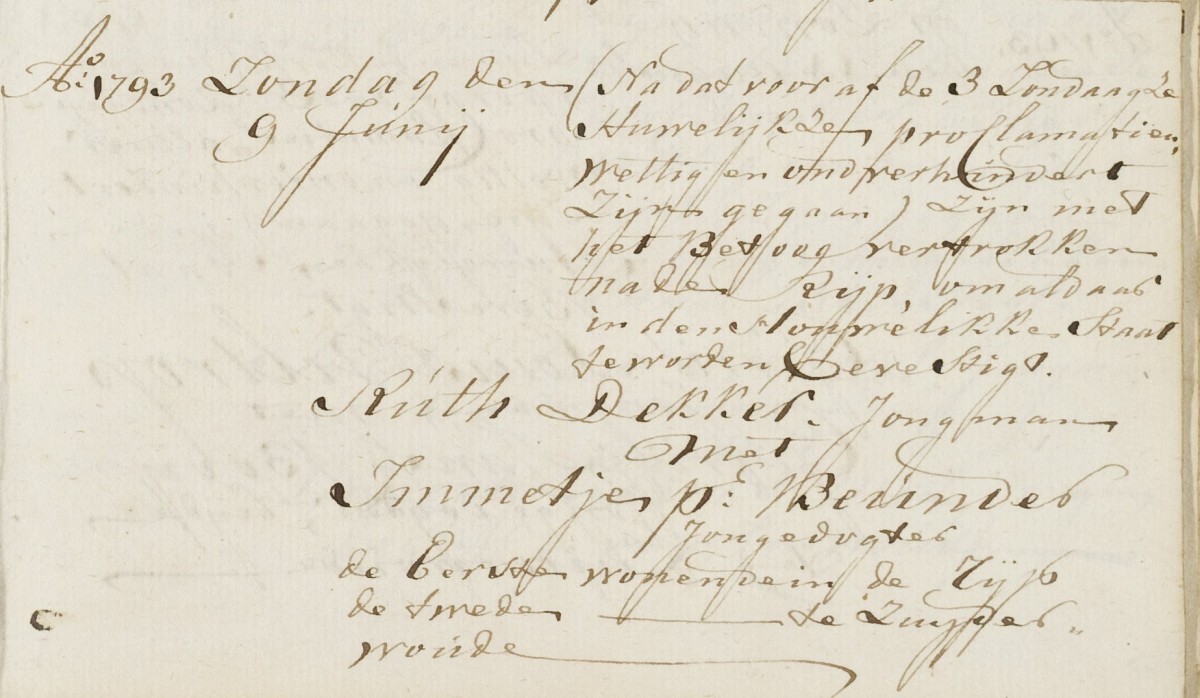 Ao: 1793 Zondag den
9 Junij
(Na dat voor af de 3 Zondaagze
Huwelijkze proclamatien
wettig en ondverhindert
Zijn gegaan) Zijn met
het Betoog vertrokken
na de Rijp, om aldaar
in den Houwelikke Staat
te worden bevestigt.
Rúth Dekker. Jongman
Met
Immetje pr: Beúnder
Jongedogter
de Eerste wonende in de Zijp
de twede ——— te Zuyder„
woude